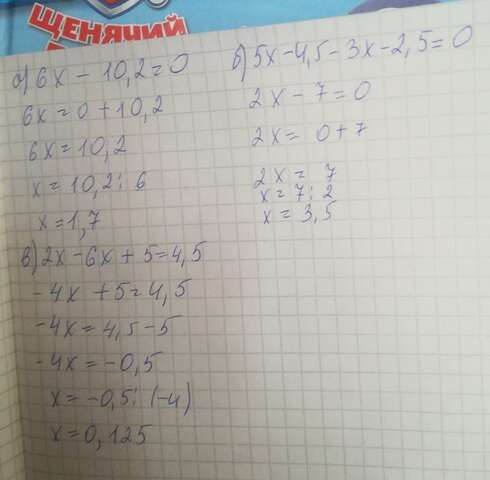 ЩЕНЯЧИЙ
а) 6x - 10,2 = 0
6x = 0 + 10,2
6x = 10,2
x = 10,2 : 6
x = 1,7
б) 5x - 4,5 - 3x - 2,5 = 0
2x - 7 = 0
2x = 0 + 7
2x = 7
x = 7 : 2
x = 3,5
в) 2x - 6x + 5 = 4,5
-4x + 5 = 4,5
-4x = 4,5 - 5
-4x = -0,5
x = -0,5 : (-4)
x = 0,125